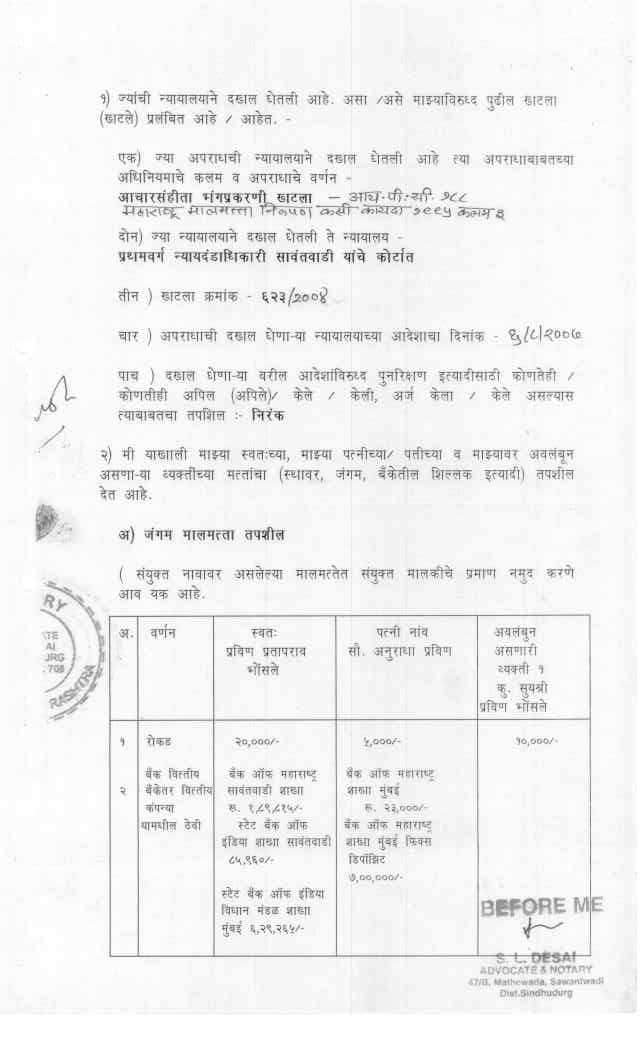 १) ज्यांची न्यायालयाने दखाल घेतली आहे. असा /असे माझ्याविरुध्द पुढील खाटला
(खाटले) प्रलंबित आहे / आहेत. -
एक) ज्या अपराधाची न्यायालयाने दखाल घेतली आहे त्या अपराधाबाबतच्या
अधिनियमाचे कलम व अपराधाचे वर्णन -
आचारसंहीता भंगप्रकरणी खाटला - आय.पी.सी. १८८
महाराष्ट्र मालमत्ता कायदा १९९५ कलम ३
दोन) ज्या न्यायालयाने दखाल घेतली ते न्यायालय -
प्रथमवर्ग न्यायदंडाधिकारी सावंतवाडी यांचे कोर्टात
तीन ) खाटला क्रमांक - ६२३/२००४
चार ) अपराधाची दखाल घेणा-या न्यायालयाच्या आदेशाचा दिनांक - ६/८/२००७
पाच ) दखाल घेणा-या वरील आदेशांविरुध्द पुनरिक्षण इत्यादीसाठी कोणतेही /
कोणतीही अपिल (अपिले)/ केले / केली, अर्ज केला / केले असल्यास
त्याबाबतचा तपशिल :- निरंक
२) मी याखाली माझ्या स्वतःच्या, माझ्या पत्नीच्या/ पतीच्या व माझ्यावर अवलंबून
असणा-या व्यक्तींच्या मत्तांचा (स्थावर, जंगम, बँकेतील शिल्लक इत्यादी) तपशील
देत आहे.
अ) जंगम मालमत्ता तपशील
( संयुक्त नावावर असलेल्या मालमत्तेत संयुक्त मालकीचे प्रमाण नमुद करणे
आव यक आहे.
अ. वर्णन स्वतः पत्नी नांव अवलंबुन
प्रविण प्रतापराव सौ. अनुराधा प्रविण असणारी
भोंसले व्यक्ती १
कु. सुयश्री
प्रविण भोंसले
१ रोकड २०,०००/- ५,०००/- १०,०००/-
२ बँक वित्तीय
बँकेतर वित्तीय
कंपन्या
यामधील ठेवी
बँक ऑफ महाराष्ट्र
सावंतवाडी शाखा
रु. १,८९,८१५/-
स्टेट बँक ऑफ
इंडिया शाखा सावंतवाडी
८५,९६०/-
स्टेट बँक ऑफ इंडिया
विधान मंडळ शाखा
मुंबई ६,२९,२६५/-
बँक ऑफ महाराष्ट्र
शाखा मुंबई
रु. २३,०००/-
बँक ऑफ महाराष्ट्र
शाखा मुंबई फिक्स
डिपॉझिट
७,००,०००/-
BEFORE ME
S. L. DESAI
ADVOCATE & NOTARY
47/B, Mathewada, Sawantwadi
Dist.Sindhudurg